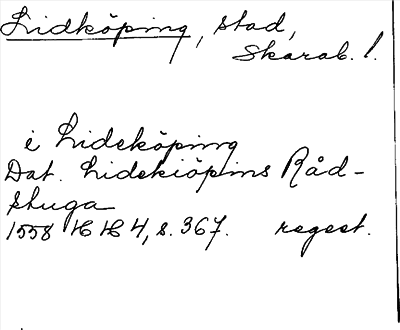 Lidköping, stad,
Skarab. l.
i Lideköping
Dat. Lidekiöpins Råd-
stuga
1558 HH 4, s. 367. regest.